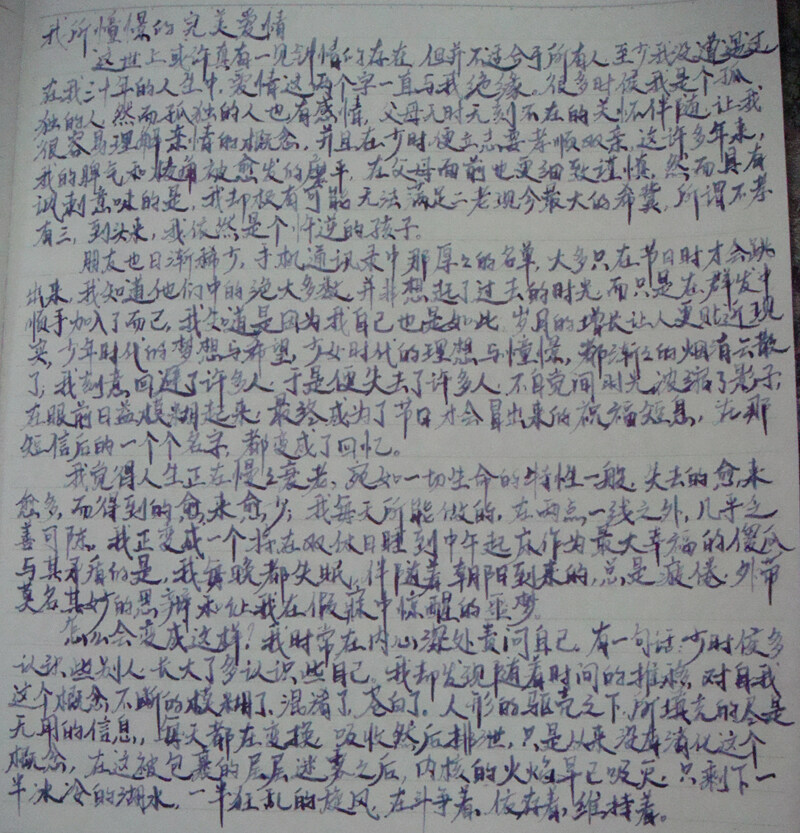 我所憧憬的完美爱情
这世上或许真有一见钟情的存在,但并不适合于所有人,至少我没遭遇过
在我三十年的人生中,爱情这两个字一直与我绝缘。很多时候我是个孤
独的人,然而孤独的人也有感情,父母无时无刻不在的关怀伴随,让我
很容易理解亲情的概念,并且在少时便立志要孝顺双亲,这许多年来,
我的脾气和棱角被愈发的磨平,在父母面前也更细致谨慎,然而具有
讽刺意味的是,我却极有可能无法满足二老现今最大的希冀,所谓不孝
有三,到头来,我依然是个忤逆的孩子。
朋友也日渐稀少,手机通讯录中那厚厚的名单,大多只在节日时才会跳
出来,我知道他们中的绝大多数,并非想起了过去的时光,而只是在群发中
顺手加入了而已,我知道是因为我自己也是如此。岁月的增长让人更贴近现
实,少年时代的梦想与希望,少女时代的理想与憧憬,都渐渐的烟消云散
了,我刻意回避了许多人,于是便失去了许多人,不自觉间时光波缩了影子,
在眼前日益模糊起来,最终成为了节日才会冒出来的祝福短息,而那
短信后的一个个名字,都变成了回忆。
我觉得人生正在慢慢衰老,宛如一切生命的特性一般,失去的愈来
愈多,而得到的愈来愈少;我每天所能做的,在两点一线之外,几乎乏
善可陈。我正变成一个将在双休日睡到中午起床作为最大幸福的傻瓜
与其矛盾的是,我每晚都失眠,伴随着朝阳到来的,总是疲倦,外带
莫名其妙的思辨永让我在假寐中惊醒的噩梦。
怎么会变成这样?我时常在内心深处责问自己,有一句话:少时候多
认识些别人,长大了多认识些自己。我却发现随着时间的推移,对自我
这个概念,不断的模糊了,混淆了,苍白了。人形的躯壳之下,所填充的尽是
无用的信息,每天都在变换,吸收然后排泄,只是从来没有消化这个
概念,在这被包裹的层层迷雾之后,内核的火焰早已熄灭,只剩下一
半冰冷的湖水,一半狂乱的旋风,在斗争着,依存着,维持着。